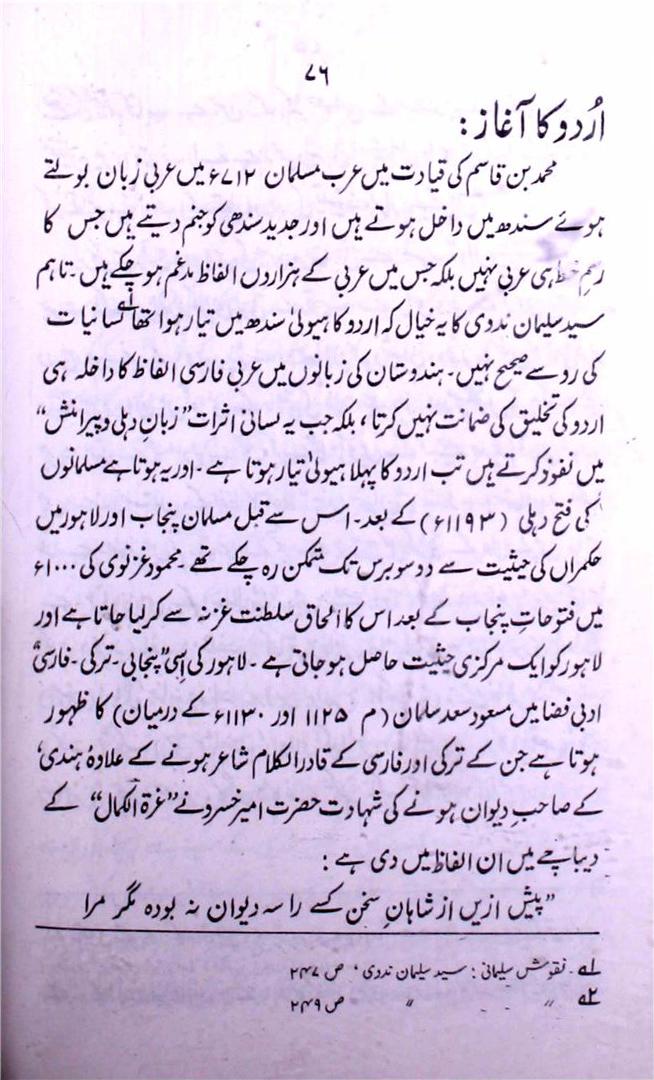 ۷۶
اُردو کا آغاز :
محمد بن قاسم کی قیادت میں عرب مسلمان ۷۱۲ء میں عربی زبان بولتے
ہوئے سندھ میں داخل ہوتے ہیں اور جدید سندھی کو جنم دیتے ہیں جس کا
رسمِ خط ہی عربی نہیں بلکہ جس میں عربی کے ہزاروں الفاظ مدغم ہو چکے ہیں۔ تاہم
سید سلیمان ندوی کا یہ خیال کہ اردو کا ہیولیٰ سندھ میں تیار ہوا تھا۱ لسانیات
کی رو سے صحیح نہیں۔ ہندوستان کی زبانوں میں عربی فارسی الفاظ کا داخلہ ہی
اردو کی تخلیق کی ضمانت نہیں کرتا، بلکہ جب یہ لسانی اثرات ”زبانِ دہلی و پیرامنش“
میں نفوذ کرتے ہیں تب اردو کا پہلا ہیولیٰ تیار ہوتا ہے۔ اور یہ ہوتا ہے مسلمانوں
کی فتح دہلی (۱۱۹۳ء) کے بعد۔ اس سے قبل مسلمان پنجاب اور لاہور میں
حکمراں کی حیثیت سے دو سو برس تک متمکن رہ چکے تھے۔ محمود غزنوی کی ۱۰۰۰ء
میں فتوحاتِ پنجاب کے بعد اس کا الحاق سلطنت غزنہ سے کر لیا جاتا ہے اور
لاہور کو ایک مرکزی حیثیت حاصل ہو جاتی ہے۔ لاہور کی اسی ”پنجابی۔ ترکی۔ فارسی“
ادبی فضا میں مسعود سعد سلمان (م ۱۱۲۵ اور ۱۱۳۰ء کے درمیان) کا ظہور
ہوتا ہے جن کے ترکی اور فارسی کے قادر الکلام شاعر ہونے کے علاوہ ہندی،
کے صاحبِ دیوان ہونے کی شہادت حضرت امیر خسرو نے ”غرة الکمال“ کے
دیباچے میں ان الفاظ میں دی ہے :
”پیش ازیں از شاہانِ سخن کسے را سہ دیوان نہ بودہ مگر مرا
۱؎۔ نقوش سلیمانی : سید سلیمان ندوی، ص ۲۴۷
۲؎ 〃 〃 ص ۲۴۹